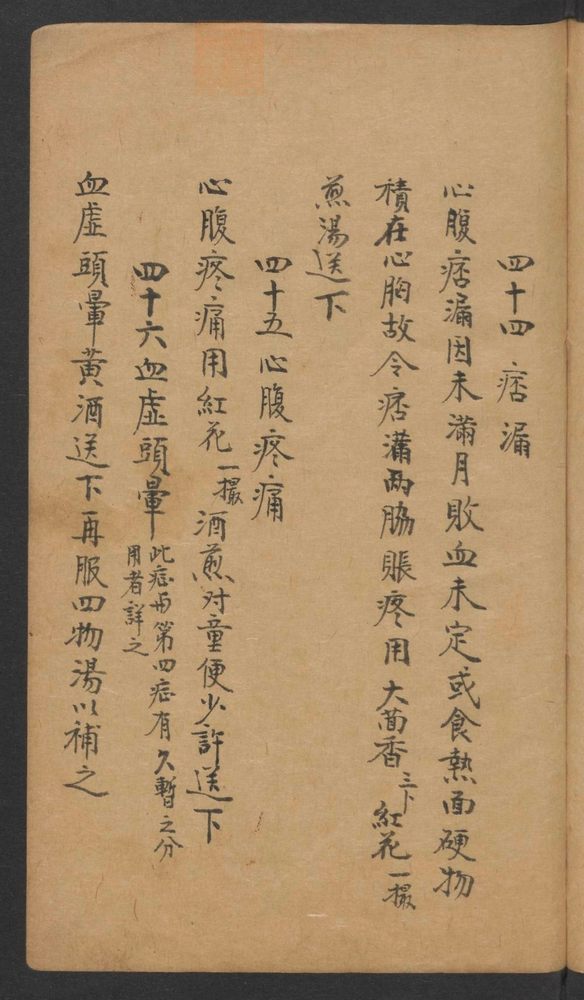 四十四 痞漏
心腹痞漏因未滿月敗血未定或食熱面硬物
積在心胸故令痞滿兩脇賬疼用大茴香三卜紅花一撮
煎湯送下
四十五心腹疼痛
心腹疼痛用紅花一撮酒煎对童便少許送下
四十六血虛頭暈此症与第四症有久暫之分用者詳之
血虛頭暈黃酒送下再服四物湯以補之